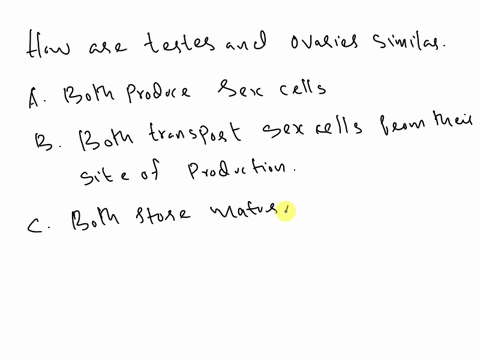 How are testes and ovaries similar.
A. Both produce sex cells
B. Both transport sex cells from their
site of production.
C. Both store matur